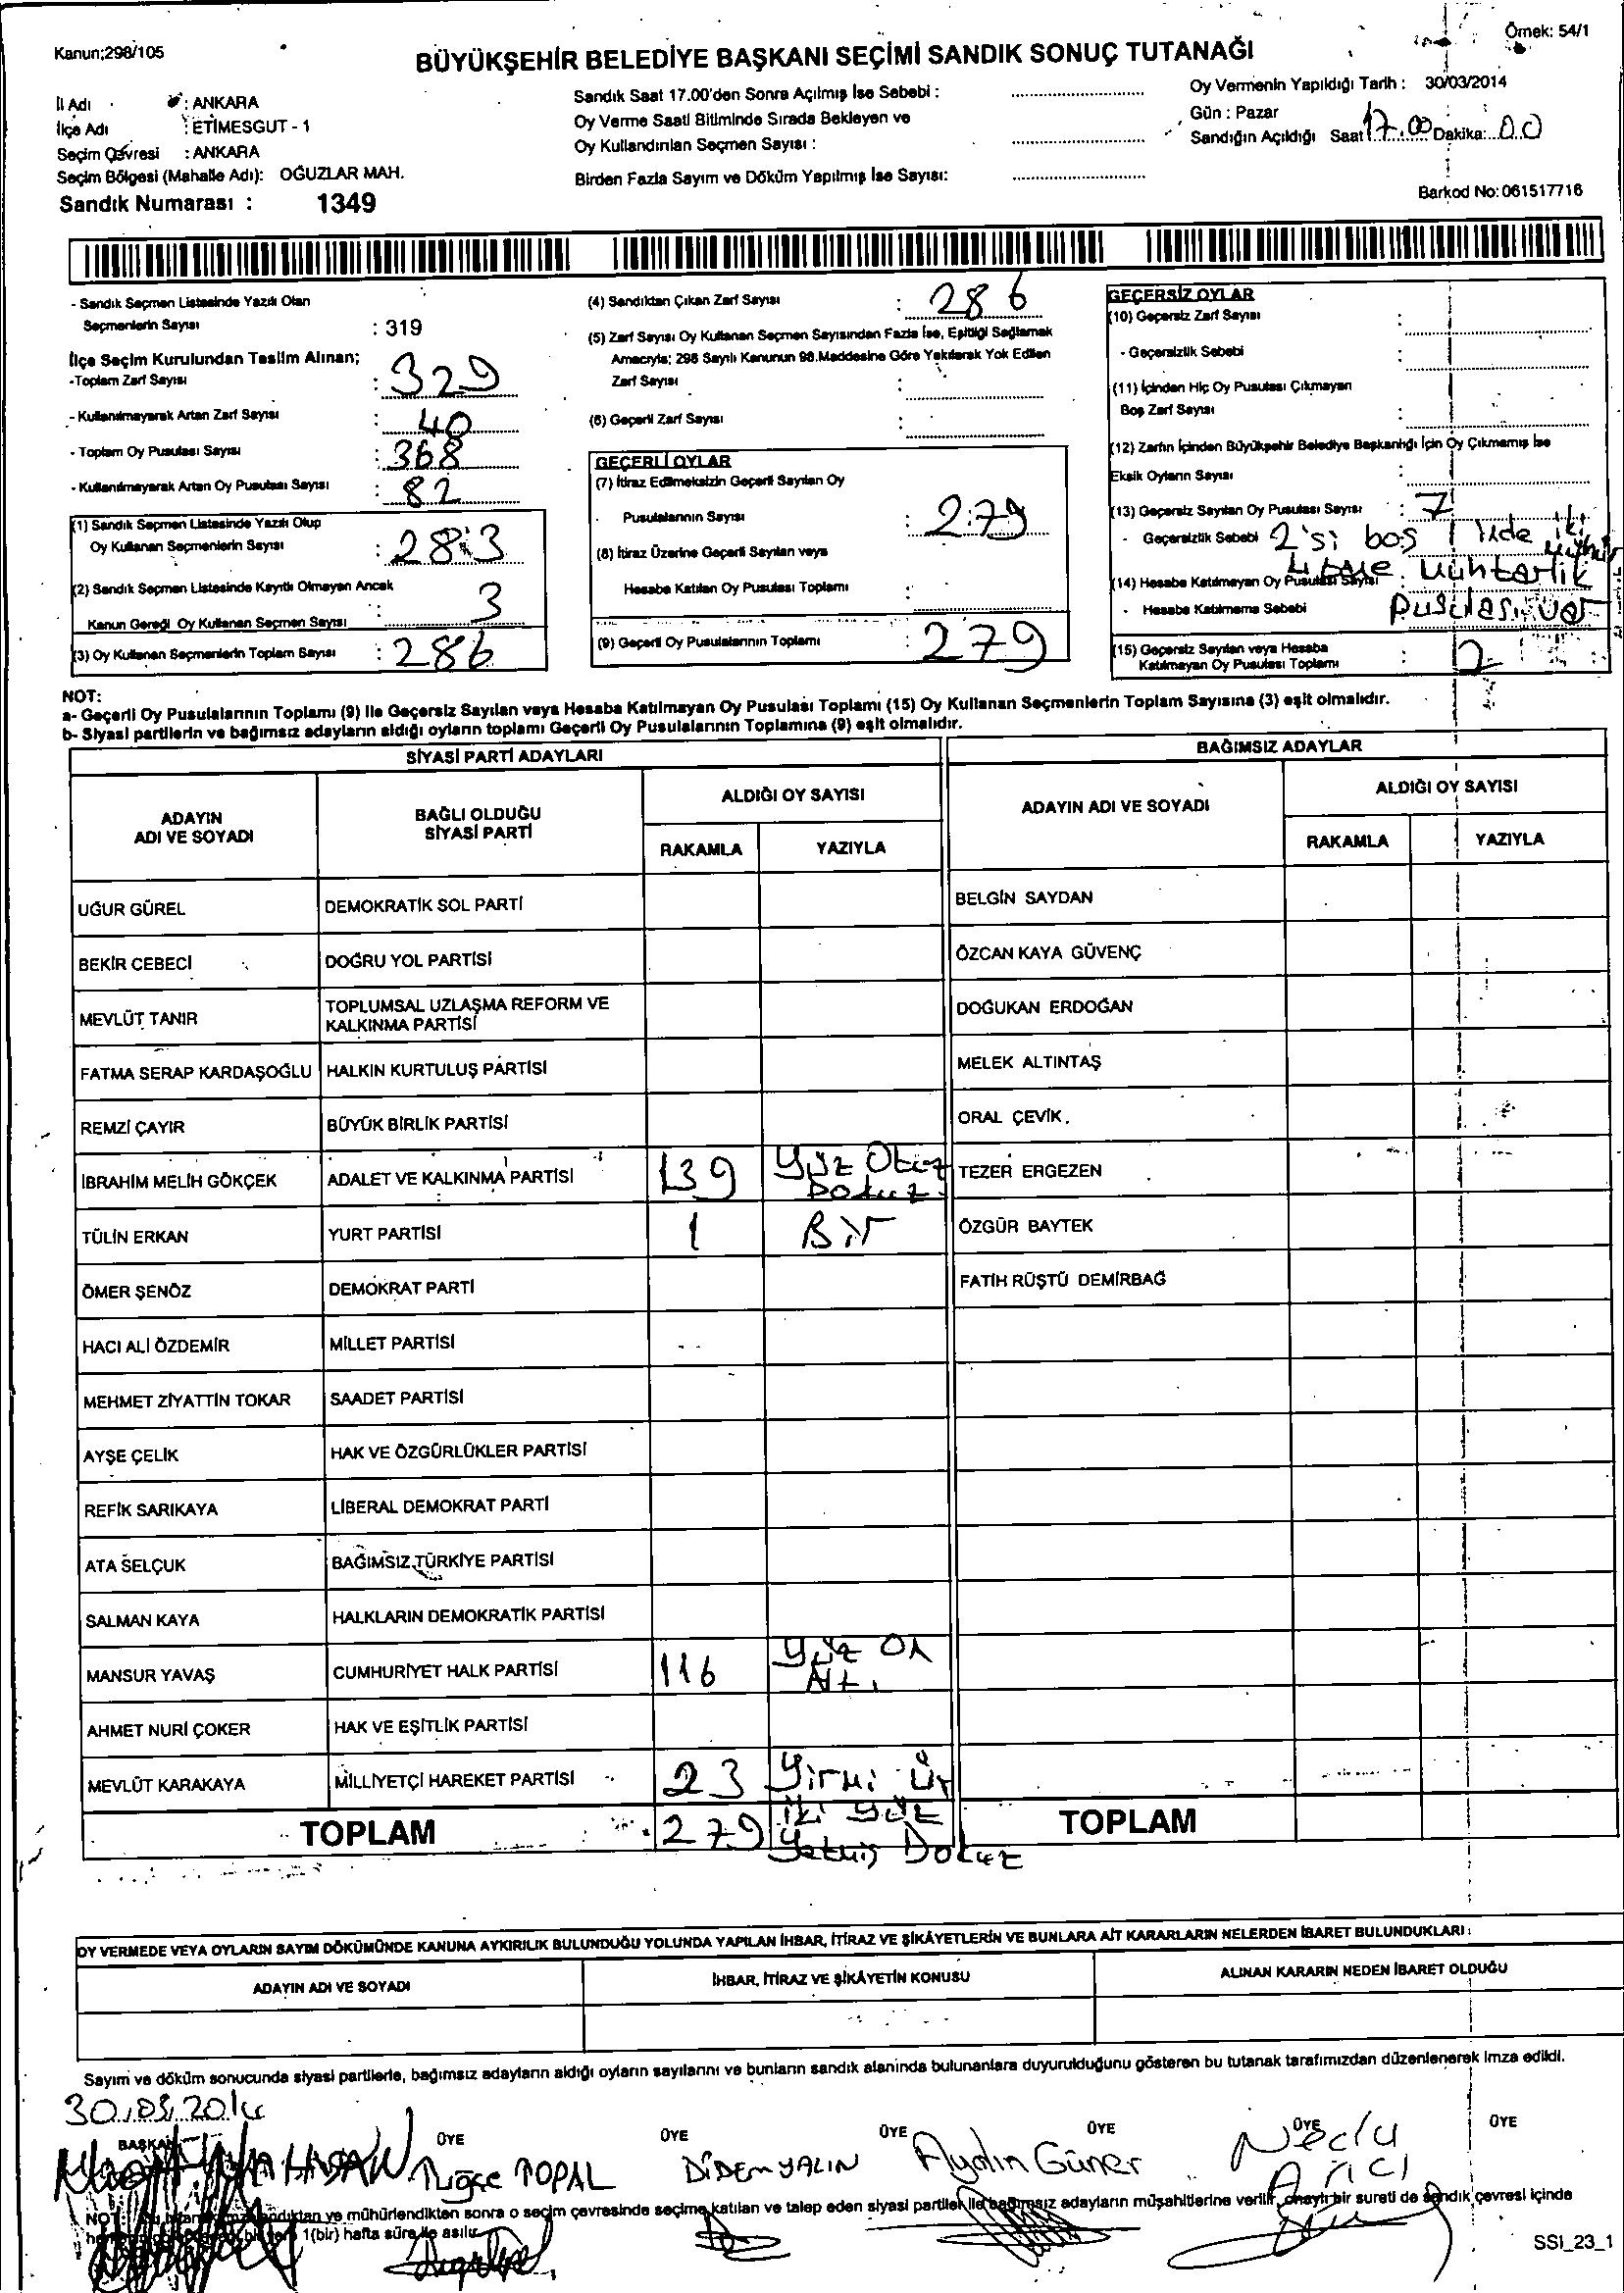 Kanun;298/105
Örnek: 54/1
BÜYÜKŞEHİR BELEDİYE BAŞKANI SEÇİMİ SANDIK SONUÇ TUTANAĞI
İl Adı : ANKARA
İlçe Adı : ETİMESGUT - 1
Seçim Çevresi : ANKARA
Seçim Bölgesi (Mahalle Adı): OĞUZLAR MAH.
Sandık Numarası : 1349
Sandık Saat 17.00'den Sonra Açılmış İse Sebebi :
Oy Verme Saati Bitiminde Sırada Bekleyen ve
Oy Kullandırılan Seçmen Sayısı :
Birden Fazla Sayım ve Döküm Yapılmış İse Sayısı:
Oy Vermenin Yapıldığı Tarih : 30/03/2014
Gün : Pazar
Sandığın Açıldığı Saat 17.00 Dakika: 00
Barkod No: 061517716
- Sandık Seçmen Listesinde Yazılı Olan
Seçmenlerin Sayısı : 319
İlçe Seçim Kurulundan Teslim Alınan;
-Toplam Zarf Sayısı : 329
- Kullanılmayarak Artan Zarf Sayısı : 40
- Toplam Oy Pusulası Sayısı : 368
- Kullanılmayarak Artan Oy Pusulası Sayısı : 82
(1) Sandık Seçmen Listesinde Yazılı Olup
Oy Kullanan Seçmenlerin Sayısı : 283
(2) Sandık Seçmen Listesinde Kayıtlı Olmayan Ancak
Kanun Gereği Oy Kullanan Seçmen Sayısı : 3
(3) Oy Kullanan Seçmenlerin Toplam Sayısı : 286
(4) Sandıktan Çıkan Zarf Sayısı : 286
(5) Zarf Sayısı Oy Kullanan Seçmen Sayısından Fazla İse, Eşitliği Sağlamak
Amacıyla; 298 Sayılı Kanunun 98.Maddesine Göre Yakılarak Yok Edilen
Zarf Sayısı :
(6) Geçerli Zarf Sayısı :
GEÇERLİ OYLAR
(7) İtiraz Edilmeksizin Geçerli Sayılan Oy
Pusulalarının Sayısı : 279
(8) İtiraz Üzerine Geçerli Sayılan veya
Hesaba Katılan Oy Pusulası Toplamı :
(9) Geçerli Oy Pusulalarının Toplamı : 279
GEÇERSİZ OYLAR
(10) Geçersiz Zarf Sayısı :
- Geçersizlik Sebebi :
(11) İçinden Hiç Oy Pusulası Çıkmayan
Boş Zarf Sayısı :
(12) Zarfın İçinden Büyükşehir Belediye Başkanlığı İçin Oy Çıkmamış İse
Eksik Oyların Sayısı :
(13) Geçersiz Sayılan Oy Pusulası Sayısı : 7
- Geçersizlik Sebebi 2'si boş 1 'ilde iki
(14) Hesaba Katılmayan Oy Pusulası Sayısı : muhtarlık
- Hesaba Katılmama Sebebi pusulası var
(15) Geçersiz Sayılan veya Hesaba
Katılmayan Oy Pusulası Toplamı :
NOT:
a- Geçerli Oy Pusulalarının Toplamı (9) ile Geçersiz Sayılan veya Hesaba Katılmayan Oy Pusulası Toplamı (15) Oy Kullanan Seçmenlerin Toplam Sayısına (3) eşit olmalıdır.
b- Siyasi partilerin ve bağımsız adayların aldığı oyların toplamı Geçerli Oy Pusulalarının Toplamına (9) eşit olmalıdır.
SİYASİ PARTİ ADAYLARI
BAĞIMSIZ ADAYLAR
ADAYIN
ADI VE SOYADI
BAĞLI OLDUĞU
SİYASİ PARTİ
ALDIĞI OY SAYISI
RAKAMLA YAZIYLA
ADAYIN ADI VE SOYADI
ALDIĞI OY SAYISI
RAKAMLA YAZIYLA
UĞUR GÜREL DEMOKRATİK SOL PARTİ BELGİN SAYDAN
BEKİR CEBECİ DOĞRU YOL PARTİSİ ÖZCAN KAYA GÜVENÇ
MEVLÜT TANIR TOPLUMSAL UZLAŞMA REFORM VE
KALKINMA PARTİSİ DOĞUKAN ERDOĞAN
FATMA SERAP KARDAŞOĞLU HALKIN KURTULUŞ PARTİSİ MELEK ALTINTAŞ
REMZİ ÇAYIR BÜYÜK BİRLİK PARTİSİ ORAL ÇEVİK
İBRAHİM MELİH GÖKÇEK ADALET VE KALKINMA PARTİSİ 139 Yüz Otuz
Dokuz TEZER ERGEZEN
TÜLİN ERKAN YURT PARTİSİ 1 Bir ÖZGÜR BAYTEK
ÖMER ŞENÖZ DEMOKRAT PARTİ FATİH RÜŞTÜ DEMİRBAĞ
HACI ALİ ÖZDEMİR MİLLET PARTİSİ
MEHMET ZİYATTİN TOKAR SAADET PARTİSİ
AYŞE ÇELİK HAK VE ÖZGÜRLÜKLER PARTİSİ
REFİK SARIKAYA LİBERAL DEMOKRAT PARTİ
ATA SELÇUK BAĞIMSIZ TÜRKİYE PARTİSİ
SALMAN KAYA HALKLARIN DEMOKRATİK PARTİSİ
MANSUR YAVAŞ CUMHURİYET HALK PARTİSİ 116 Yüz On
Altı
AHMET NURİ ÇOKER HAK VE EŞİTLİK PARTİSİ
MEVLÜT KARAKAYA MİLLİYETÇİ HAREKET PARTİSİ 23 Yirmi Üç
TOPLAM 279 İki yüz
Yetmiş Dokuz TOPLAM
OY VERMEDE VEYA OYLARIN SAYIM DÖKÜMÜNDE KANUNA AYKIRILIK BULUNDUĞU YOLUNDA YAPILAN İHBAR, İTİRAZ VE ŞİKÂYETLERİN VE BUNLARA AİT KARARLARIN NELERDEN İBARET BULUNDUKLARI :
ADAYIN ADI VE SOYADI İHBAR, İTİRAZ VE ŞİKÂYETİN KONUSU ALINAN KARARIN NEDEN İBARET OLDUĞU
Sayım ve döküm sonucunda siyasi partilerle, bağımsız adayların aldığı oyların sayılarını ve bunların sandık alanında bulunanlara duyurulduğunu gösteren bu tutanak tarafımızdan düzenlenerek imza edildi.
30.03.2014
BAŞKAN ÜYE ÜYE ÜYE ÜYE ÜYE ÜYE
Tuğçe TOPAL DİDEM YALIN Aydın Güner Necla
Arıcı
NOT: sandıktan ve mühürlendikten sonra o seçim çevresinde seçime katılan ve talep eden siyasi partiler ile bağımsız adayların müşahitlerine verilir, onaylı bir sureti de sandık çevresi içinde
1(bir) hafta süre ile asılır.
SSI_23_1